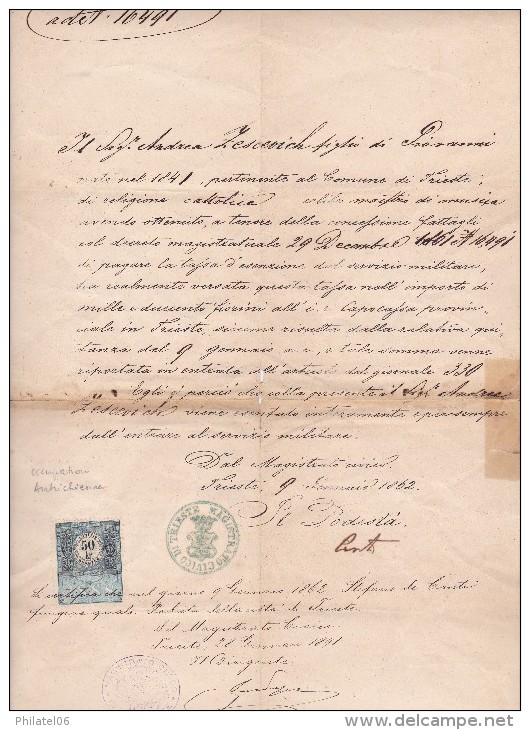 ad N. 16491
Il Sigr. Andrea Zescevich figlio di Giovanni
nato nel 1841, pertinente al Comune di Trieste,
di religione cattolica abile maestro di musica
avendo ottenuto, a tenore della concessione fattagli
col decreto magistratuale 29 Decembre 1861 N 16491
di pagare la tassa d'esenzione dal servizio militare,
ha realmente versata questa tassa nell'importo di
mille e duecento fiorini all'i. r. Capocassa provin-
ciale in Trieste, siccome risulta dalla relativa qui-
tanza dal 9 gennaio a. c., e tale somma venne
riportata in entrata all'articolo del giornale 330
Egli è perciò che colla presente il Sigr. Andrea
Zescevich viene esentato intieramente e per sempre
dall'entrare al servizio militare.
Dal Magistrato civico
Trieste, 9 Gennaio 1862.
Il Podestà
Conti
occupation
Autrichienne
50
MAGISTRATO CIVICO DI TRIESTE
Si certifica che nel giorno 9 Gennaio 1862 Stefano de Conti
fungeva quale Podestà della città di Trieste
Dal Magistrato Civico
Trieste, 28 Gennaio 1891
Il Dirigente
Philatel06
www.delcampe.net